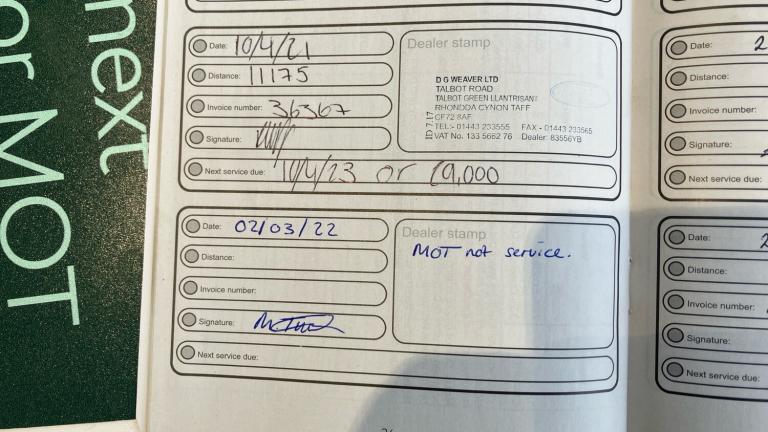 next
or MOT
Date: 10/4/21
Distance: 11175
Invoice number: 36367
Signature:
Next service due: 10/4/23 or 19,000
Dealer stamp
D G WEAVER LTD
TALBOT ROAD
TALBOT GREEN LLANTRISANT
RHONDDA CYNON TAFF
CF72 8AF
TEL:- 01443 233555 FAX - 01443 233565
VAT No. 133 5662 76 Dealer: 83556YB
ID 7.17
Date: 02/03/22
Distance:
Invoice number:
Signature:
Next service due:
Dealer stamp
MOT not service.
Date: 2
Distance:
Invoice number:
Signature:
Next service due:
Date: 2
Distance:
Invoice number:
Signature:
Next service due: